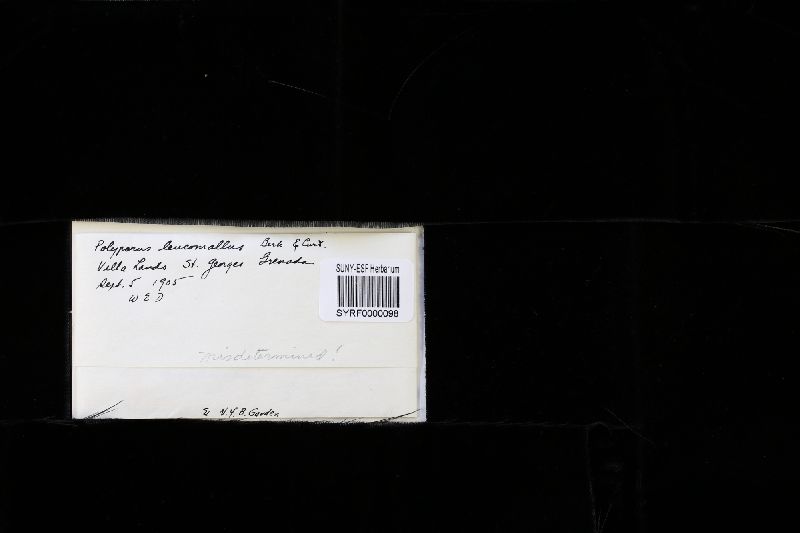 Polyporus leucomallus Berk & Curt.
Villa Lands St. Georges Grenada
Sept. 5 1905
W E D
SUNY-ESF Herbarium
SYRF0000098
misdetermined!
N.Y.B. Garden